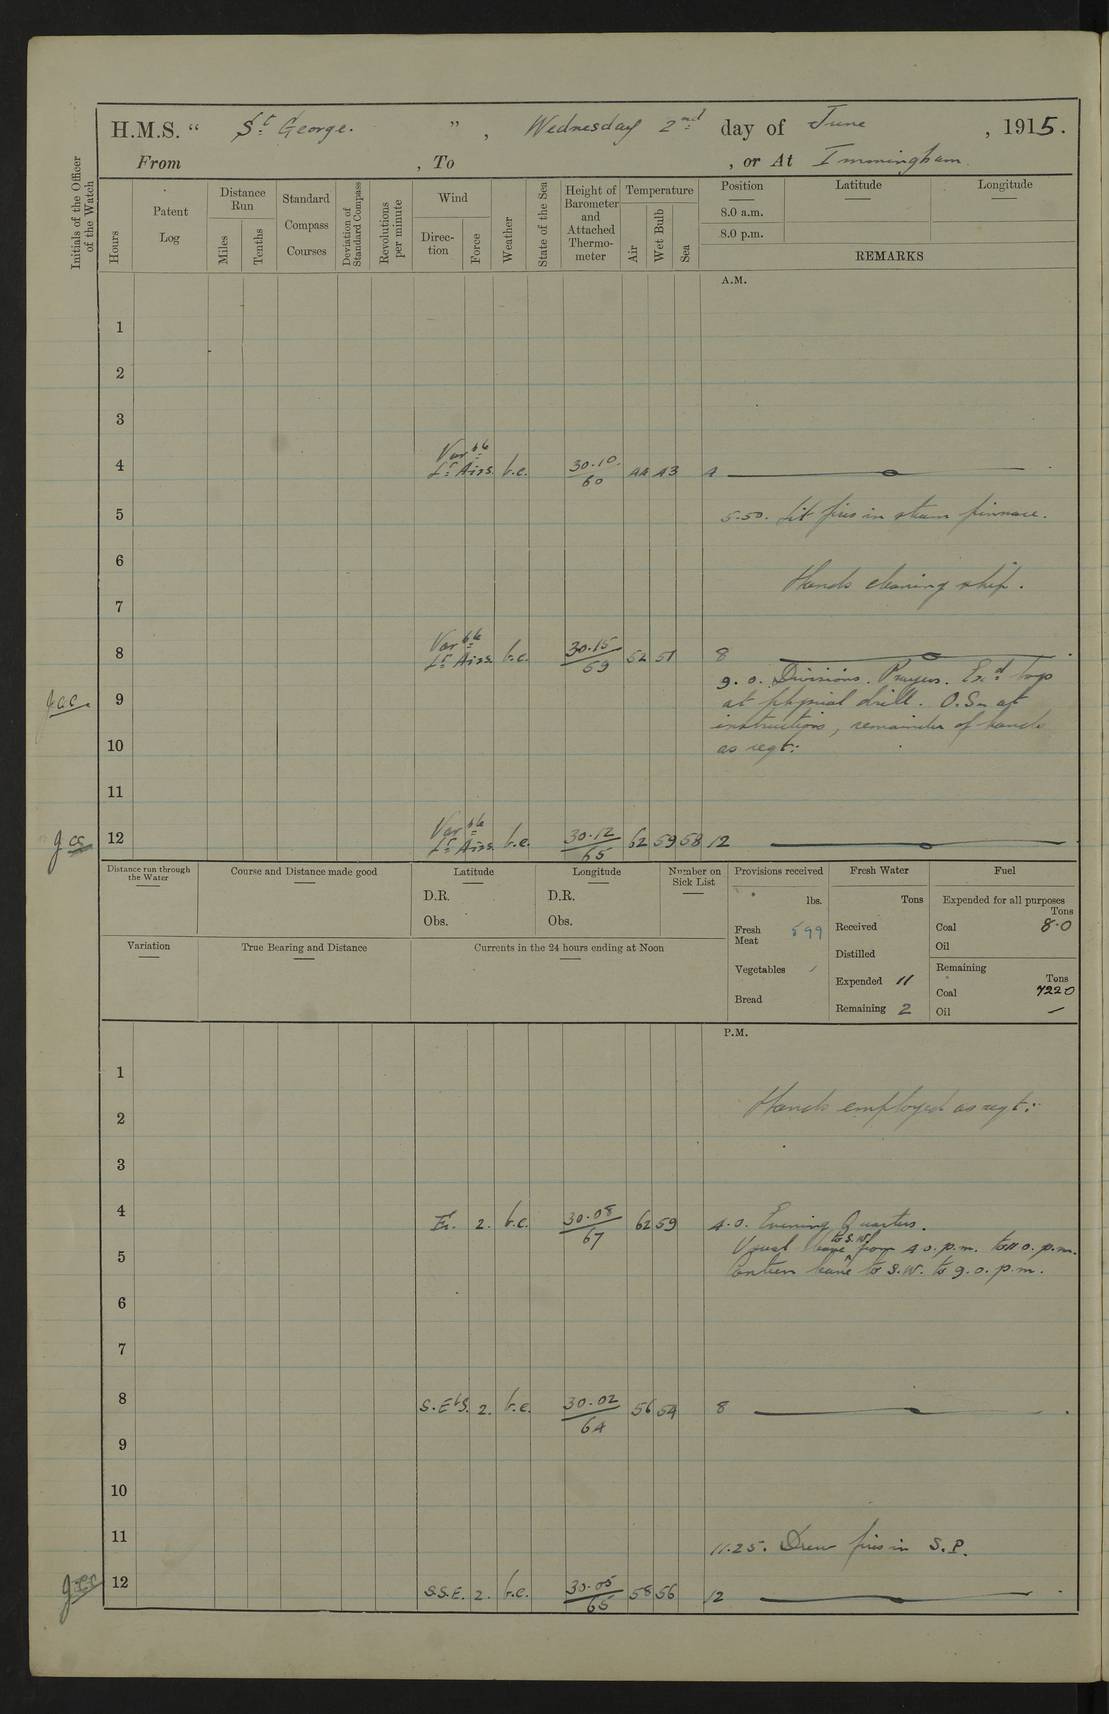 H.M.S. " St George. ", Wednesday 2nd day of June, 1915.
From , To , or At Immingham.
Initials of the Officer of the Watch
Hours
Patent Log
Distance Run
Miles
Tenths
Standard Compass Courses
Deviation of Standard Compass
Revolutions per minute
Wind
Direction
Force
Weather
State of the Sea
Height of Barometer and Attached Thermometer
Temperature
Air
Wet Bulb
Sea
Position
Latitude
Longitude
8.0 a.m.
8.0 p.m.
REMARKS
A.M.
1
2
3
4 Varble Lt Airs. b.c. 30.10/60 44 43 4
5 5.50. Lit fires in steam pinnace.
6
Hands cleaning ship.
7
8 Varble Lt Airs b.c. 30.15/59 52 51 8
9.0. Divisions. Prayers. Exd boys
9 at physical drill. O.Sn at
instructions, remainder of hands
10 as reqt:
11
12 Varble Lt Airs b.c. 30.12/65 62 59 58 12
Distance run through the Water
Course and Distance made good
Latitude
D.R.
Obs.
Longitude
D.R.
Obs.
Number on Sick List
Provisions received
lbs.
Fresh Meat 599
Vegetables
Bread
Fresh Water
Tons
Received
Distilled
Expended 11
Remaining 2
Fuel
Expended for all purposes
Tons
Coal 8.0
Oil
Remaining
Tons
Coal 7220
Oil —
Variation
True Bearing and Distance
Currents in the 24 hours ending at Noon
P.M.
1
2 Hands employed as reqt:
3
4 E. 2. b.c. 30.08/67 62 59 4.0. Evening Quarters.
Usual leave to S.W. from 4 o. p.m. to 11 o. p.m.
5 Canteen leave to S.W. to 9.0. p.m.
6
7
8 S.EbS. 2. b.c. 30.02/64 56 54 8
9
10
11 11.25. Drew fires in S.P.
12 S.S.E. 2. b.c. 30.05/65 58 56 12